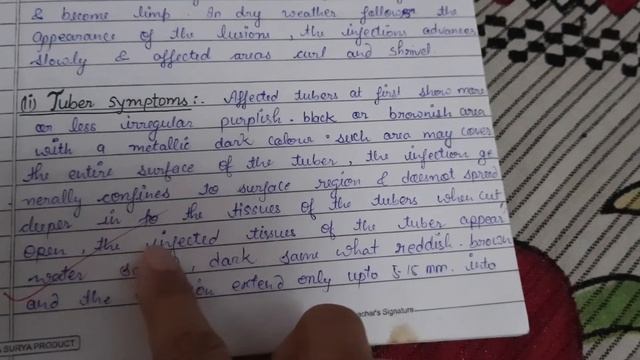 & become limp. In dry weather follows the
appearance of the lusions, the infections advances
slowly & affected areas curl and shrivel
(ii) Tuber symptoms:- Affected tubers at first show more
or less irregular purplish. black or brownish area
with a metallic dark colour. such area may cover
the entire surface of the tuber, the infection ge
nerally confines to surface region & doesnot spread
deeper in to the tissues of the tubers when cut
open, the infected tissues of the tuber appear
water, dark some what reddish. brown
and the extend only upto 5-15 mm. into
eachar's Signature
SURYA PRODUCT